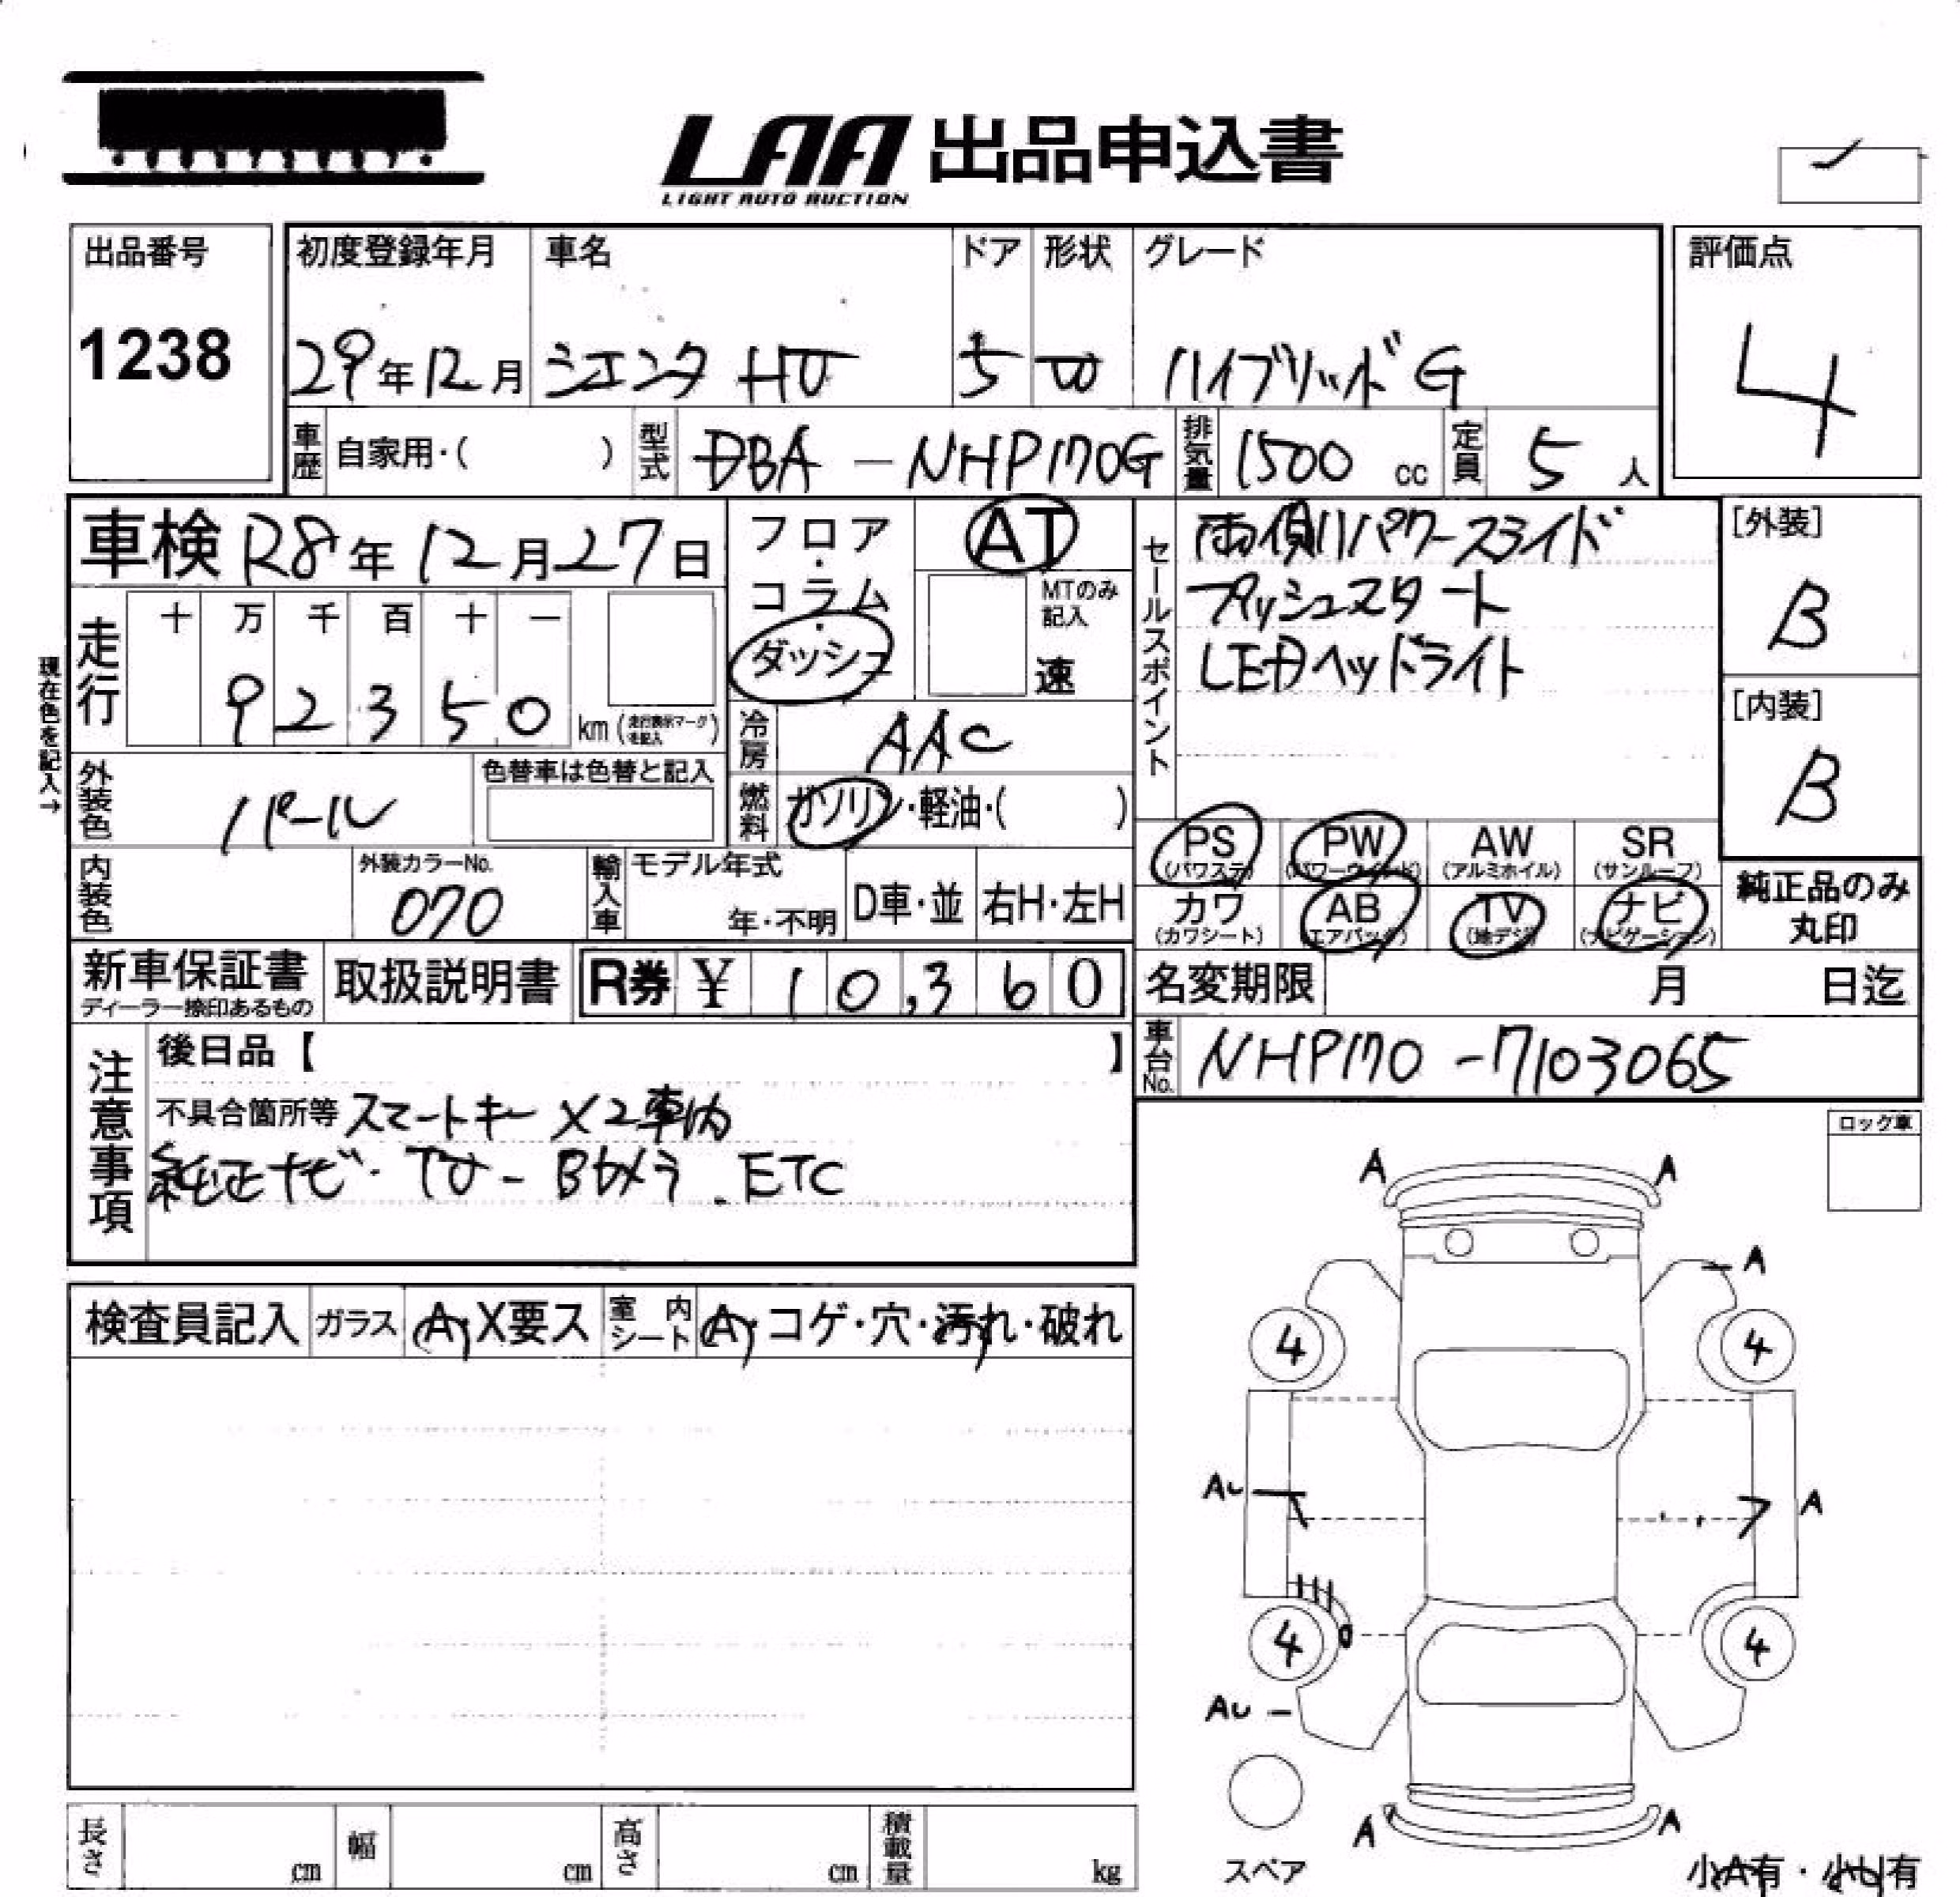 LAA 出品申込書
LIGHT AUTO AUCTION
出品番号
1238
初度登録年月
29年12月
車名
シエンタ HV
ドア
5
形状
W
グレード
ハイブリッド G
評価点
4
車歴
自家用・( )
型式
DBA - NHP170G
排気量
1500 cc
定員
5 人
現在色を記入→
車検 R8年12月27日
走行
十 万 千 百 十 一
9 2 3 5 0 km (走行表示マークを記入)
外装色
パール
色替車は色替と記入
内装色
外装カラーNo.
070
フロア・コラム・ダッシュ
AT
MTのみ記入
速
冷房
AAC
燃料
ガソリン・軽油・( )
輸入車
モデル年式
年・不明
D車・並
右H・左H
セールスポイント
両側パワースライド
プッシュスタート
LEDヘッドライト
[外装]
B
[内装]
B
PS (パワステ)
PW (パワーウィンド)
AW (アルミホイル)
SR (サンルーフ)
カワ (カワシート)
AB (エアバック)
TV (地デジ)
ナビ (ナビゲーション)
純正品のみ丸印
新車保証書
ディーラー捺印あるもの
取扱説明書
R券 ¥ 10,360
名変期限
月 日迄
車台No.
NHP170-7103065
注意事項
後日品【 】
不具合箇所等 スマートキー×2車内
純正ナビ・TV-Bカメラ.ETC
ロック車
検査員記入
ガラス
A・X要ス
室内シート
A・コゲ・穴・汚れ・破れ
A A
A
4 4
Au A
4 4
Au
A A
スペア
小A有・小U有
長さ cm
幅 cm
高さ cm
積載量 kg